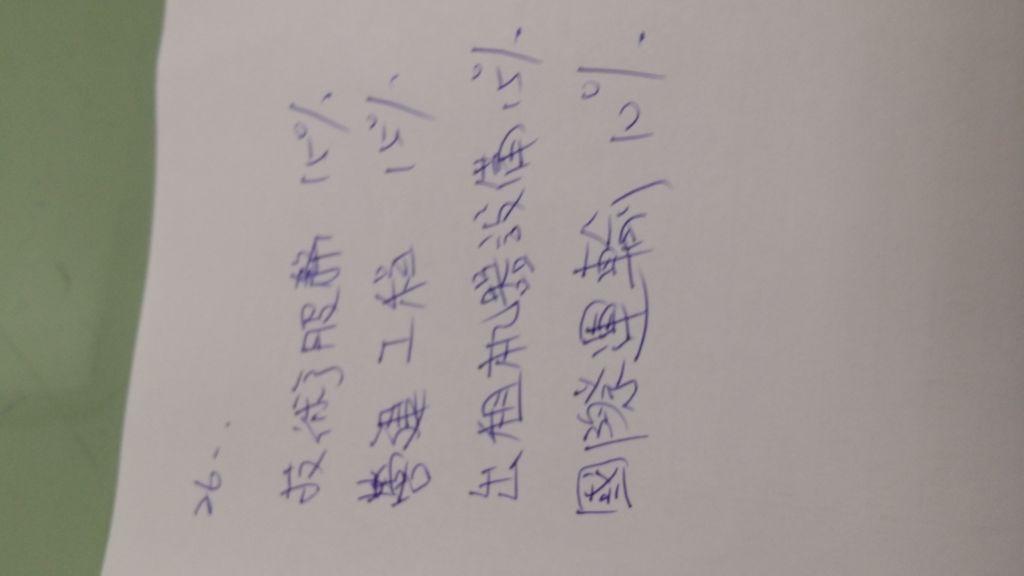 26-.
技術服務 15%.
營建工程 15%.
出租機器設備 15%.
國際運輸 10%.